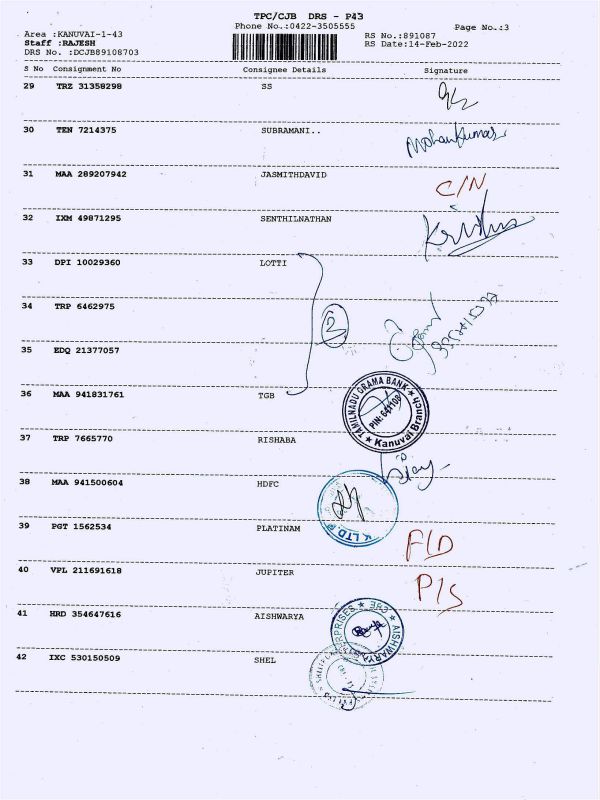 TPC/CJB DRS - P43
Phone No.:0422-3505555
Page No.:3
Area :KANUVAI-1-43
RS No.:891087
Staff :RAJESH
RS Date:14-Feb-2022
DRS No. :DCJB89108703
S No Consignment No Consignee Details Signature
29 TRZ 31358298 SS
30 TEN 7214375 SUBRAMANI..
Mohankumar
31 MAA 289207942 JASMITHDAVID
C/N
32 IXM 49871295 SENTHILNATHAN
33 DPI 10029360 LOTTI
34 TRP 6462975
3
35 EDQ 21377057
36 MAA 941831761 TGB
TAMILNADU GRAMA BANK
PIN: 641108
Kanuvai Branch
37 TRP 7665770 RISHABA
38 MAA 941500604 HDFC
K LTD.
39 PGT 1562534 PLATINAM
F/D
40 VPL 211691618 JUPITER
P/S
41 HRD 354647616 AISHWARYA
AISHWARYA ENTERPRISES CBE
42 IXC 530150509 SHEL